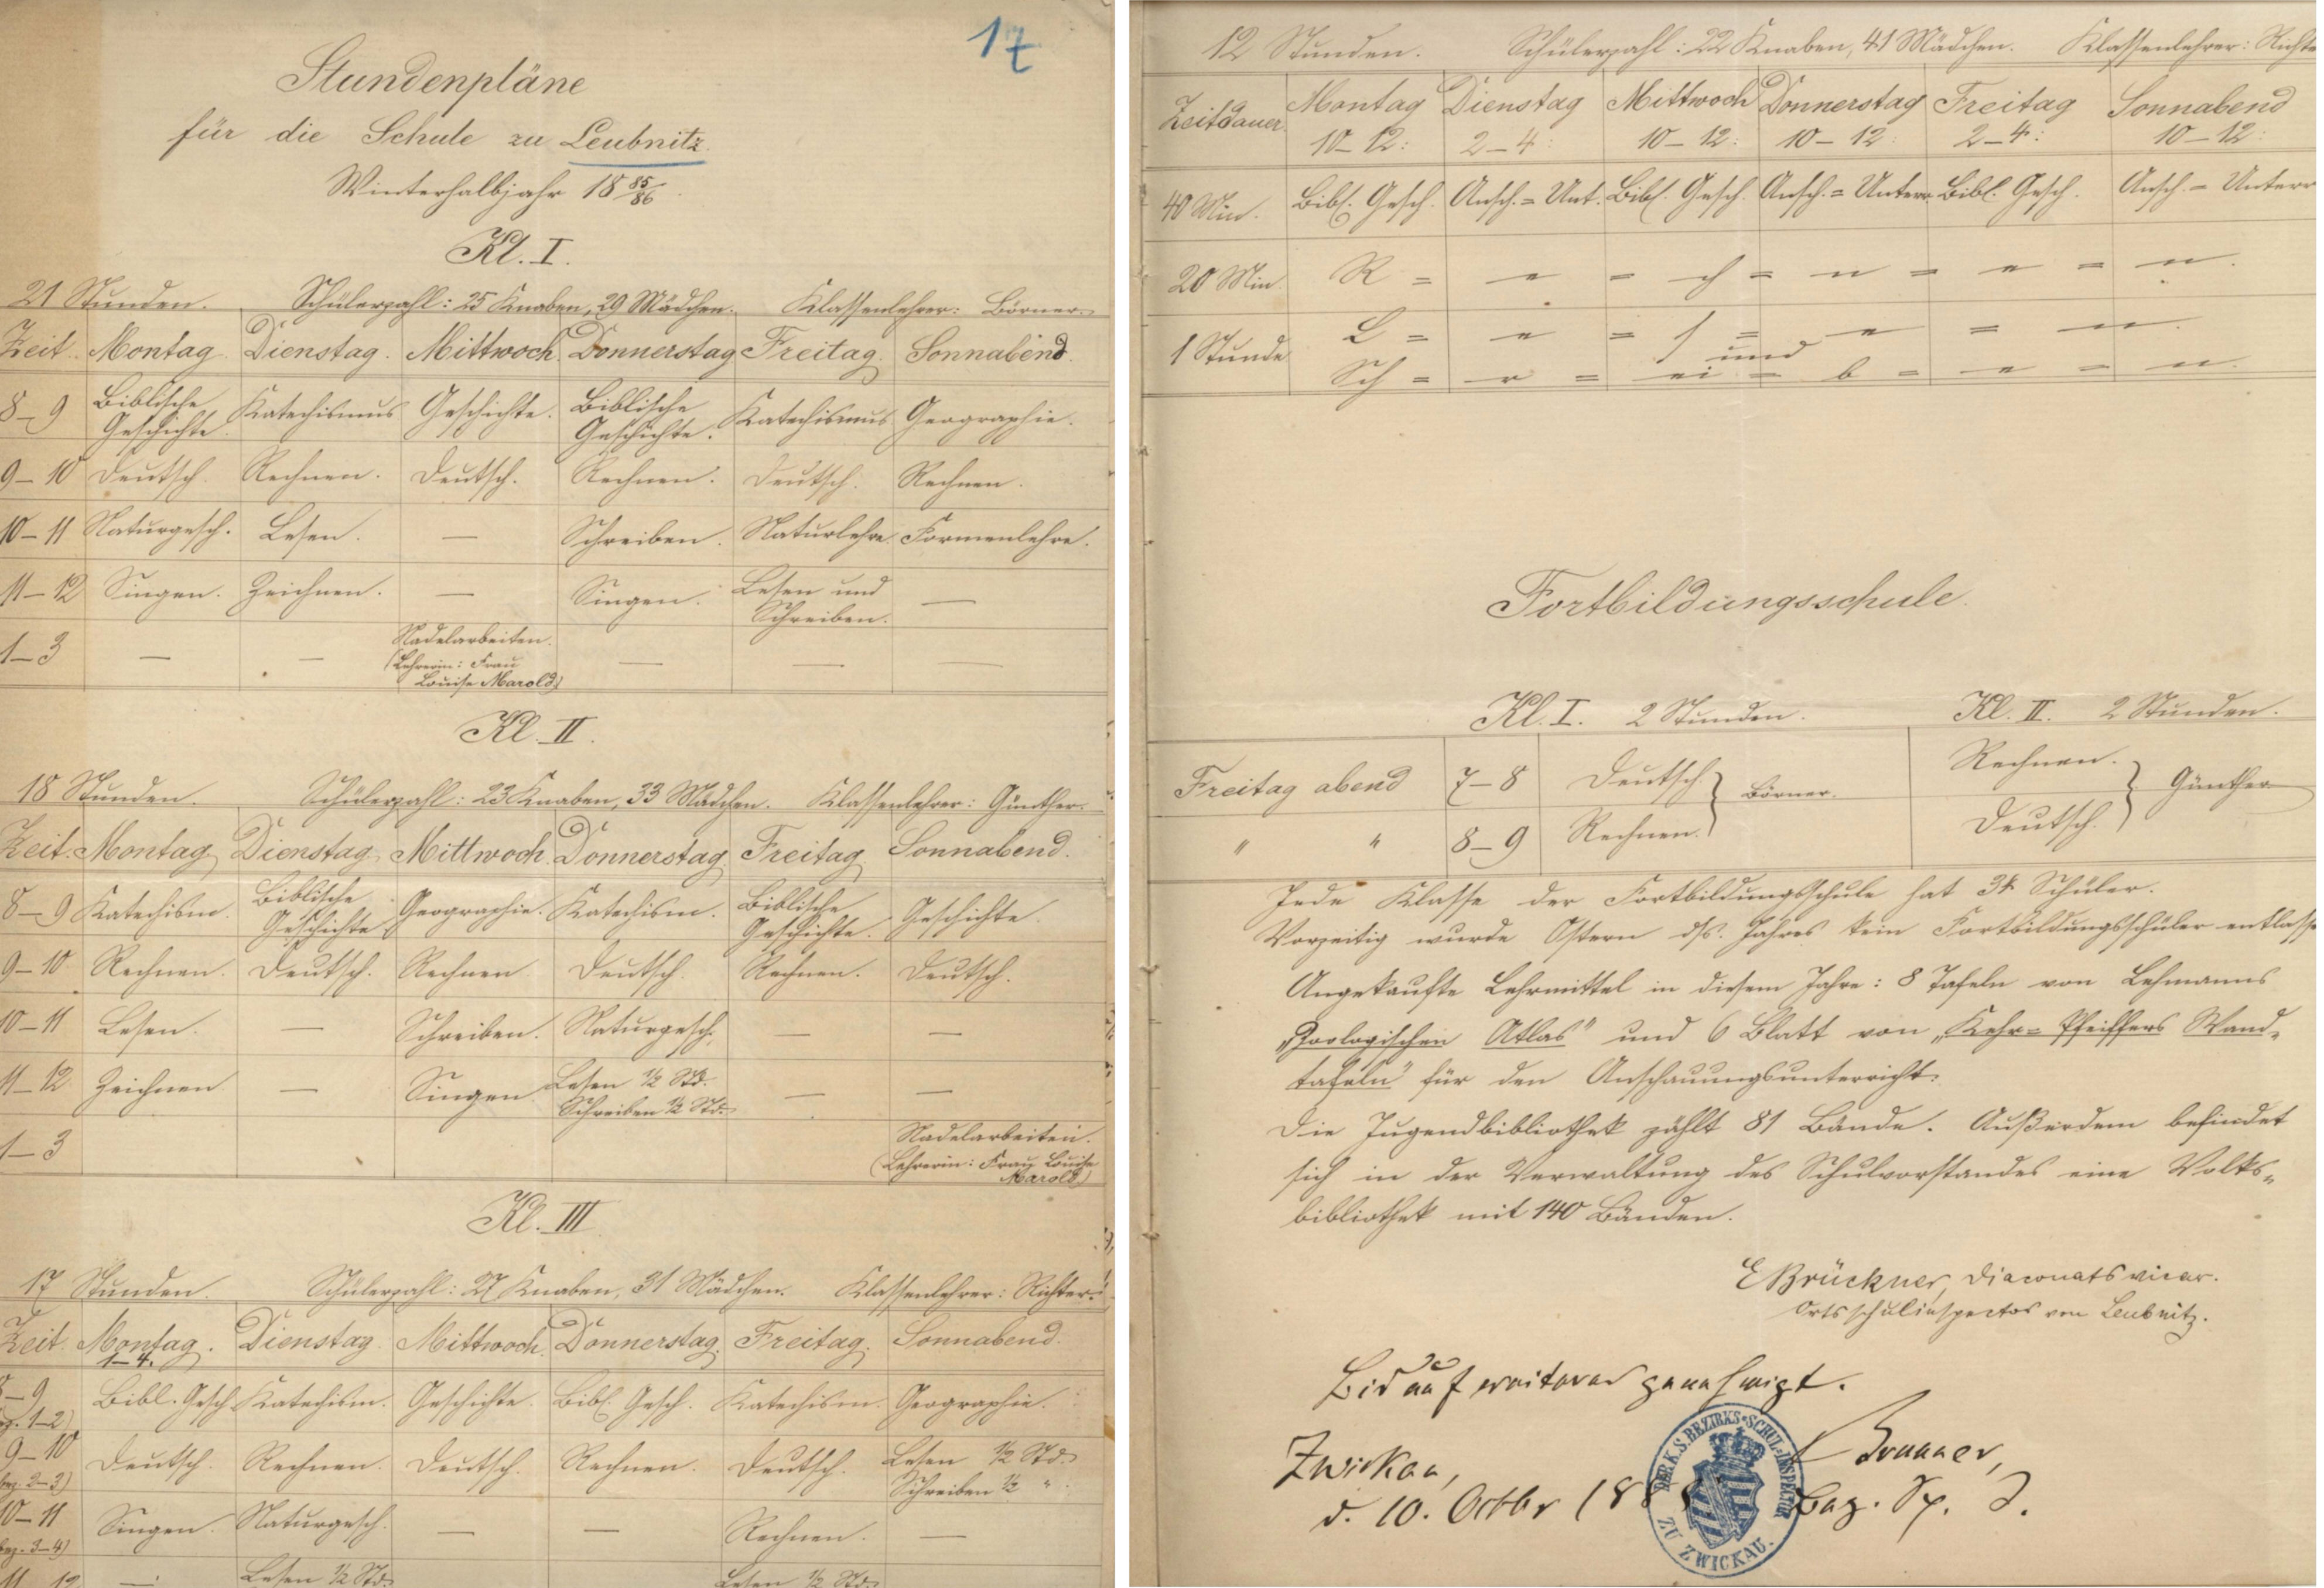 17
Stundenpläne
für die Schule zu Leubnitz.
Winterhalbjahr 18 85/86.
Kl. I.
21 Stunden. Schülerzahl: 25 Knaben, 29 Mädchen. Klassenlehrer: Börner.
Zeit. Montag. Dienstag. Mittwoch. Donnerstag Freitag. Sonnabend.
8–9 Biblische Geschichte. Katechismus Geschichte. Biblische Geschichte. Katechismus Geographie.
9–10 Deutsch. Rechnen. Deutsch. Rechnen. Deutsch. Rechnen.
10–11 Naturgesch. Lesen. — Schreiben. Naturlehre Formenlehre.
11–12 Singen. Zeichnen. — Singen. Lesen und Schreiben. —
1–3 — — Nadelarbeiten. (Lehrerin: Frau Louise Marold) — — —
Kl. II.
18 Stunden. Schülerzahl: 23 Knaben, 33 Mädchen. Klassenlehrer: Günther.
Zeit. Montag Dienstag Mittwoch. Donnerstag Freitag Sonnabend.
8–9 Katechism. Biblische Geschichte Geographie. Katechism. Biblische Geschichte. Geschichte.
9–10 Rechnen. Deutsch. Rechnen Deutsch. Rechnen. Deutsch.
10–11 Lesen. — Schreiben. Naturgesch. — —
11–12 Zeichnen — Singen Lesen ½ Std. Schreiben ½ Std. — —
1–3 Nadelarbeiten. (Lehrerin: Frau Louise Marold)
Kl. III
17 Stunden. Schülerzahl: 27 Knaben, 31 Mädchen. Klassenlehrer: Richter.
Zeit. Montag. 1–4. Dienstag Mittwoch. Donnerstag. Freitag. Sonnabend.
8–9 (bez. 1–2) Bibl. Gesch. Katechism. Geschichte. Bibl. Gesch. Katechism. Geographie.
9–10 (bez. 2–3) Deutsch. Rechnen. Deutsch. Rechnen. Deutsch. Lesen ½ Std. Schreiben ½ "
10–11 (bez. 3–4) Singen. Naturgesch. — — Rechnen. —
11–12 — Lesen ½ Std. Lesen ½ Std.
12 Stunden. Schülerzahl: 22 Knaben, 41 Mädchen. Klassenlehrer: Richte
Zeitdauer. Montag 10–12: Dienstag 2–4: Mittwoch 10–12: Donnerstag 10–12: Freitag 2–4: Sonnabend 10–12:
40 Min. Bibl. Gesch. Ansch.=Unt. Bibl. Gesch. Ansch.=Unterr. Bibl. Gesch. Ansch.=Unterr
20 Min. R = e = ch = n = e = n.
1 Stunde L = e = s = e = n.
und
Sch = r = ei = b = e = n.
Fortbildungsschule.
Kl. I. 2 Stunden. Kl. II. 2 Stunden.
Freitag abend 7–8 Deutsch. Börner. Rechnen. Günther
" " 8–9 Rechnen. Deutsch.
Jede Klasse der Fortbildungsschule hat 34 Schüler.
Vorzeitig wurde Ostern ds. Jahres kein Fortbildungsschüler entlasse
Angekaufte Lehrmittel in diesem Jahre: 8 Tafeln von Lehmanns
„Zoologischen Atlas" und 6 Blatt von „Kehr=Pfeiffers Wand=
tafeln" für den Anschauungsunterricht.
Die Jugendbibliothek zählt 81 Bände. Außerdem befindet
sich in der Verwaltung des Schulvorstandes eine Volks=
bibliothek mit 140 Bänden.
E Brückner, Diaconatsvicar.
Ortsschulinspector von Leubnitz.
Bis auf weiteres genehmigt.
Zwickau,
d. 10. Octbr 188
Bez. Sch. I.
DER K. S. BEZIRKS-SCHUL-INSPECTOR ZU ZWICKAU.